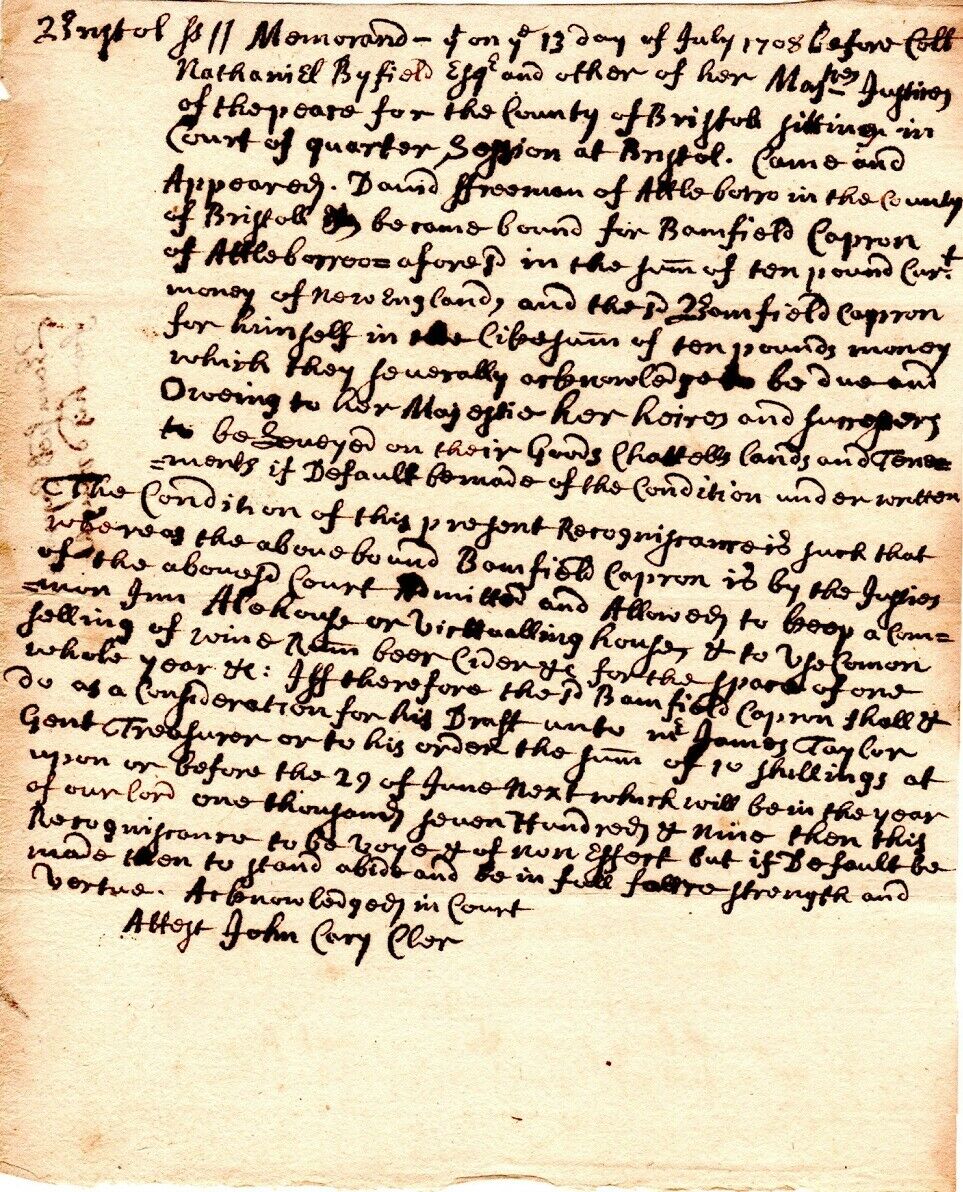 Bristol ss// Memorand - yt on ye 13 day of July 1708 before Coll
Nathaniel Byfield Esqr and other of her Majsties Justices
of the peace for the County of Bristoll sitting in
Court of quarter Session at Bristol. Came and
Appeared. David ffreeman of Attleborro in the County
of Bristoll became bound for Bamfield Capron
of Attleborroo= aforesd in the sum of ten pound Curt
money of New England, and the sd Bamfield Capron
for himself in the like sum of ten pounds money
which they severally acknowledge to be due and
Oweing to her Majestie her heires and successers
to be Leveyed on their Goods Chattells lands and Tene=
=ments if Default be made of the Condition under written
The Condition of this present Recogniscance is such that
whereas the above bound Bamfield Capron is by the Justices
of the abovesd Court Admitted and Allowed to keep a Com=
=mon Inn Alehouse or Victtualling house, & to Use Comon
selling of wine Rum beer Cider &c for the space of one
whole year &c: Iff therefore the sd Bamfield Capron shall &
do as a Consideration for his Draft unto mr James Taylor
Gent Treasurer or to his order the sum of 10 shillings at
upon or before the 29 of June Next which will be in the year
of our lord one thousand seven Hundred & nine then this
Recogniscance to be voye & of non Effect but if Default be
made then to stand abide and be in full force strength and
Vertue. Acknowledged in Court
Attest John Cary Cler